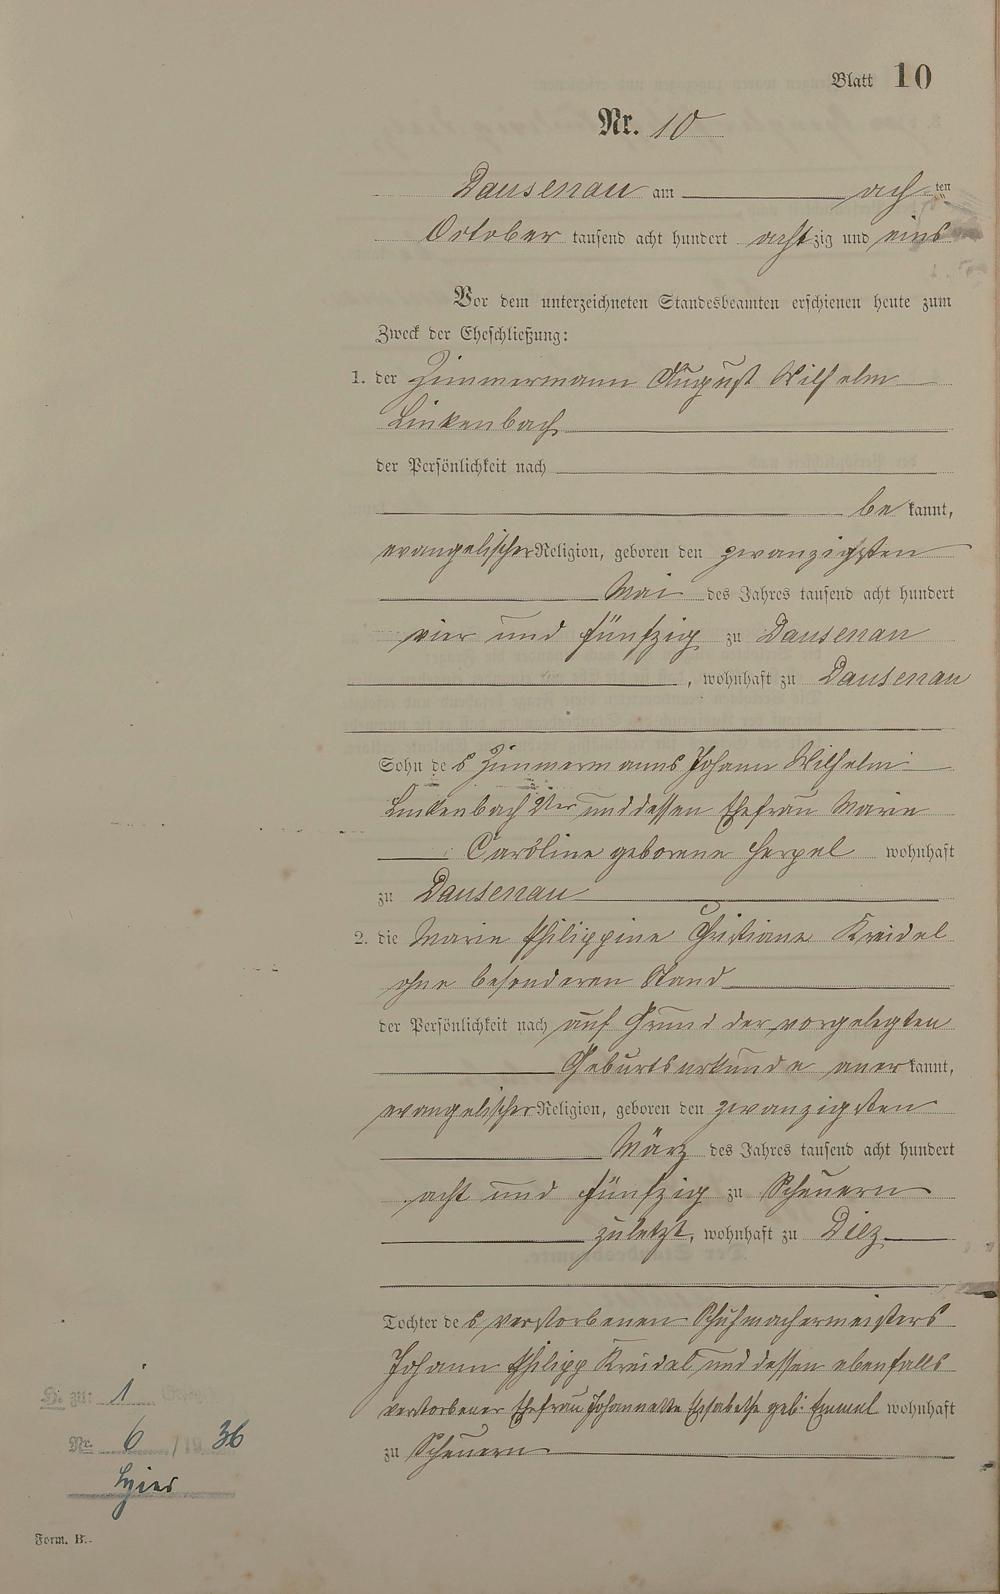 Blatt 10
Nr. 10
Dausenau am achten
October tausend acht hundert achtzig und eins
Vor dem unterzeichneten Standesbeamten erschienen heute zum
Zweck der Eheschließung:
1. der Zimmermann August Wilhelm
Linkenbach
der Persönlichkeit nach
bekannt,
evangelischer Religion, geboren den zwanzigsten
Mai des Jahres tausend acht hundert
vier und fünfzig zu Dausenau
, wohnhaft zu Dausenau
Sohn des Zimmermanns Johann Wilhelm
Linkenbach 2ter und dessen Ehefrau Marie
Caroline geborene Herpel wohnhaft
zu Dausenau
2. die Marie Philippine Christiane Kreidel
ohne besonderen Stand
der Persönlichkeit nach auf Grund der vorgelegten
Geburtsurkunde anerkannt,
evangelischer Religion, geboren den zwanzigsten
März des Jahres tausend acht hundert
acht und fünfzig zu Scheuern
zuletzt, wohnhaft zu Diez
Tochter des verstorbenen Schuhmachermeisters
Johann Philipp Kreidel und dessen ebenfalls
verstorbener Ehefrau Johannette Elisabethe geb. Emmel wohnhaft
zu Scheuern
H. zu: 1
Nr. 6 /1936
Form. B.